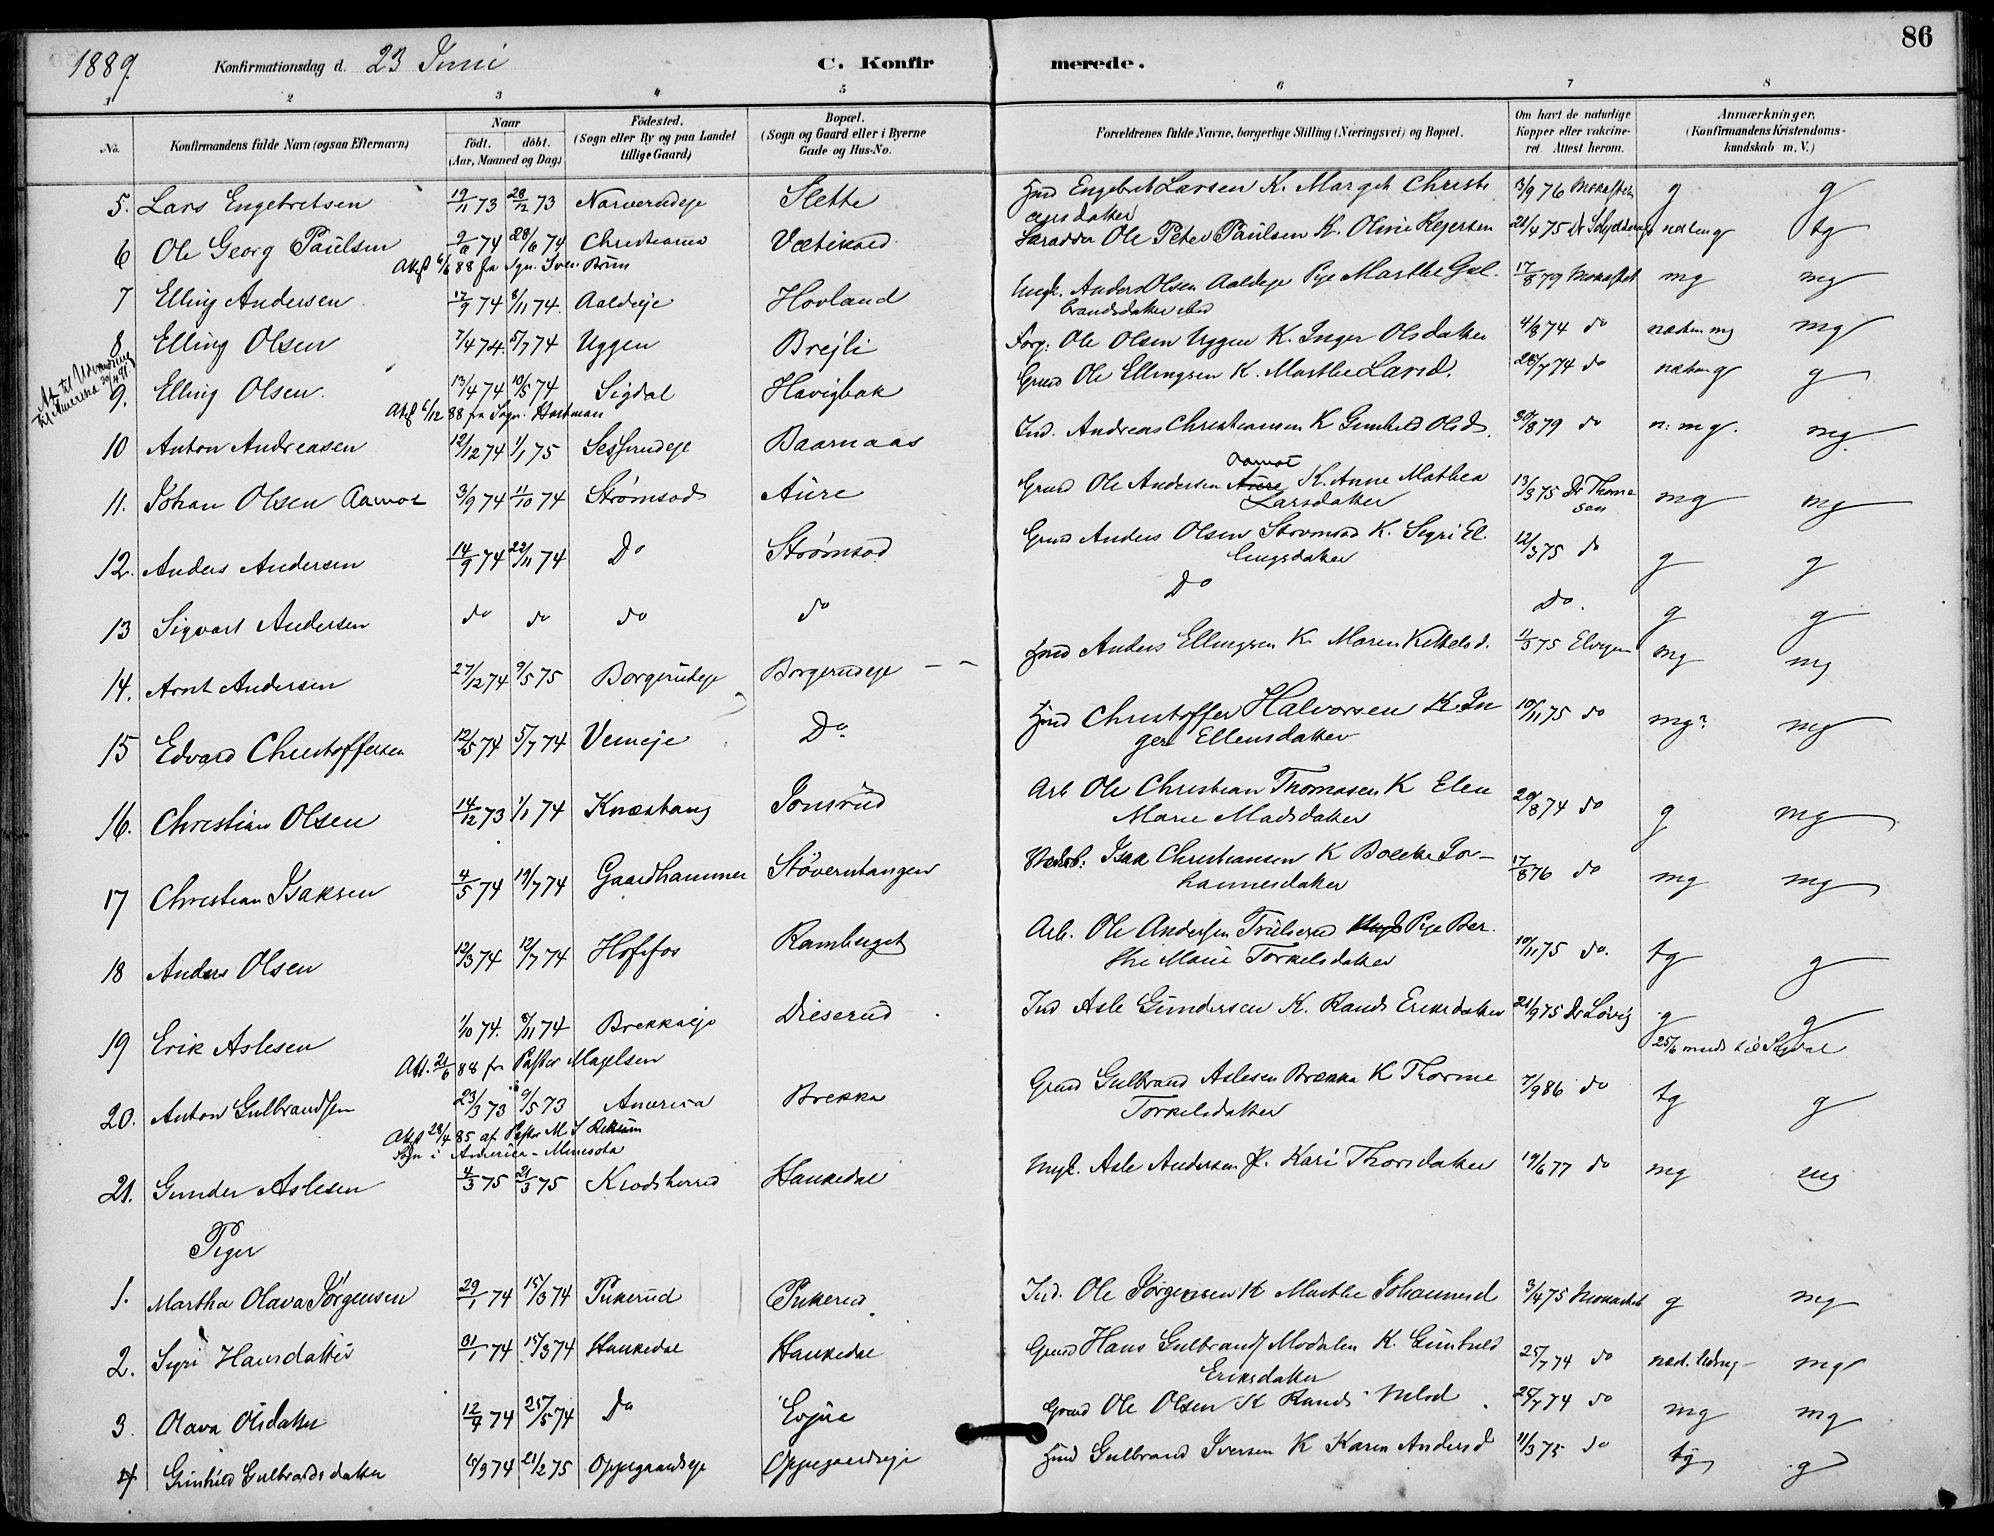 1889
Konfirmationsdag d. 23 Juni
C. Konfirmerede.
86
1 2 3 4 5 6 7 8
No. Konfirmandens fulde Navn (ogsaa Efternavn) Naar født. døbt. (Aar, Maaned og Dag) Födested. (Sogn eller By og paa Landet tillige Gaard) Bopæl. (Sogn og Gaard eller i Byerne Gade og Hus-No. Forældrenes fulde Navne, borgerlige Stilling (Næringsvei) og Bopæl. Om havt de naturlige Kopper eller vaccineret. Attest herom. Anmærkninger. (Konfirmandens Kristendomskundskab m. V.)
5. Lars Engebretsen 19/11 73 28/12 73 Narverudeje Slette Hmd Engebret Larsen K. Margit Christiansdatter 3/9 76 g g
6 Ole Georg Paulsen 9/6 74 28/6 74 Christiania Ole Peter Paulsen K. Oline Rejersen 21/4 75 tg
Attest 6/6 88 fra Sgn. Iver Brun
7 Elling Andersen 17/9 74 8/11 74 Aaldeje Hovland Ungk. Anders Olsen Aaldeje Pige Marthe Gulbrandsdatter 17/8 79 mg mg
8 Elling Olsen 7/4 74 5/7 74 Uggen Brejli Forp: Ole Olsen Uggen K. Inger Olsdatter 4/8 74 do mg
At. til Udvandring til Amerika 20/4 91
9. Elling Olsen. 13/4 74 10/5 74 Sigdal Havigbak Grmd Ole Ellingsen K. Marthe Larsd. 25/7 74 do g
Attest 6/12 88 fra Sogn. Hartman
10 Anton Andreasen 12/12 74 1/1 75 Sesserudeje Baarnaas Ind. Andreas Christiansen K Gunhild Olsd. 30/8 79 do n: mg. mg.
11. Johan Olsen Aamot 3/9 74 11/10 74 Strømsod Aure Grmd Ole Andersen Aure Aamot K. Anne Mathea Larsdatter 13/3 75 Dr Thomasen mg mg
12. Anders Andersen 14/9 74 22/11 74 Do Strømsod Grmd Anders Olsen Stromsod K. Sigri Ellingsdatter 12/3 75 do g g
13 Sigvart Andersen do do do do Do Do. g g
14. Arnt Andersen 27/12 74 9/5 75 Borgerudeje Borgerudeje - - Hmd Anders Ellingsen K. Maren Kittelsd. 11/3 75 Elvigen mg mg
15 Edvard Christoffersen 12/5 74 5/7 74 Vemeje Do Hmd Christoffer Halvorsen K. Inger Ellensdatter 10/11 75 do mg? mg
16. Christian Olsen 14/12 73 1/1 74 Knæstang Jonsrud Arb Ole Christian Thomasen K Elen Marie Madsdatter 20/8 74 do g mg
17 Christian Isaksen 4/5 74 19/7 74 Gaardhammer Støverntangen Isak Christiansen K Bolette Johannesdatter 17/8 76 do mg mg
18 Anders Olsen 12/3 74 12/7 74 Hofsfos Ramberget Arb. Ole Andersen Trulserud Pige Berthe Marie Torkelsdatter 10/11 75 do. tg g
19 Erik Aslesen 1/10 74. 8/11 74 Brekkaeje Dieserud Ind Asle Gundersen K. Randi Eriksdatter 21/9 75 Dr Lövig g g
Att. 21/6 88 fra Pastor Magelsen
25/6 meldt til Sigdal
20. Anton Gulbrandsen 23/3 73 9/5 73 America Brekka Grmd Gulbrand Aslesen Brekka K Thorine Torkelsdatter 7/9 86 do tg g
Attest 28/4 85 af Pastor M. J.
Sogn i America - Minesota
21. Gunder Aslesen 4/3 75 21/3 75 Krodsherred Haukedal Ungk. Asle Andersen P. Kari Thorsdatter 19/6 77 do mg mg
Piger
1. Martha Olava Jörgensen 29/1 74 15/3 74 Pukerud Pukerud Ind. Ole Jörgensen K Marthe Johannesd 3/4 75 g mg
2. Sigri Hansdatter 31/1 74 15/3 74 Haukedal Haukedal Grmd Hans Gulbrands Modalen K. Gunhild Eriksdatter 25/7 74 do mg
3. Olava Olsdatter 12/4 74 25/5 74 Do Evjua Grmd Ole Olsen K Randi Nilsd 25/7 74 do mg mg
4 Gunhild Gulbrandsdatter 6/9 74 21/2 75 Oppegaardseje Oppegaardseje Hmd Gulbrand Iversen K Karen Andersd 11/3 75 do tg g